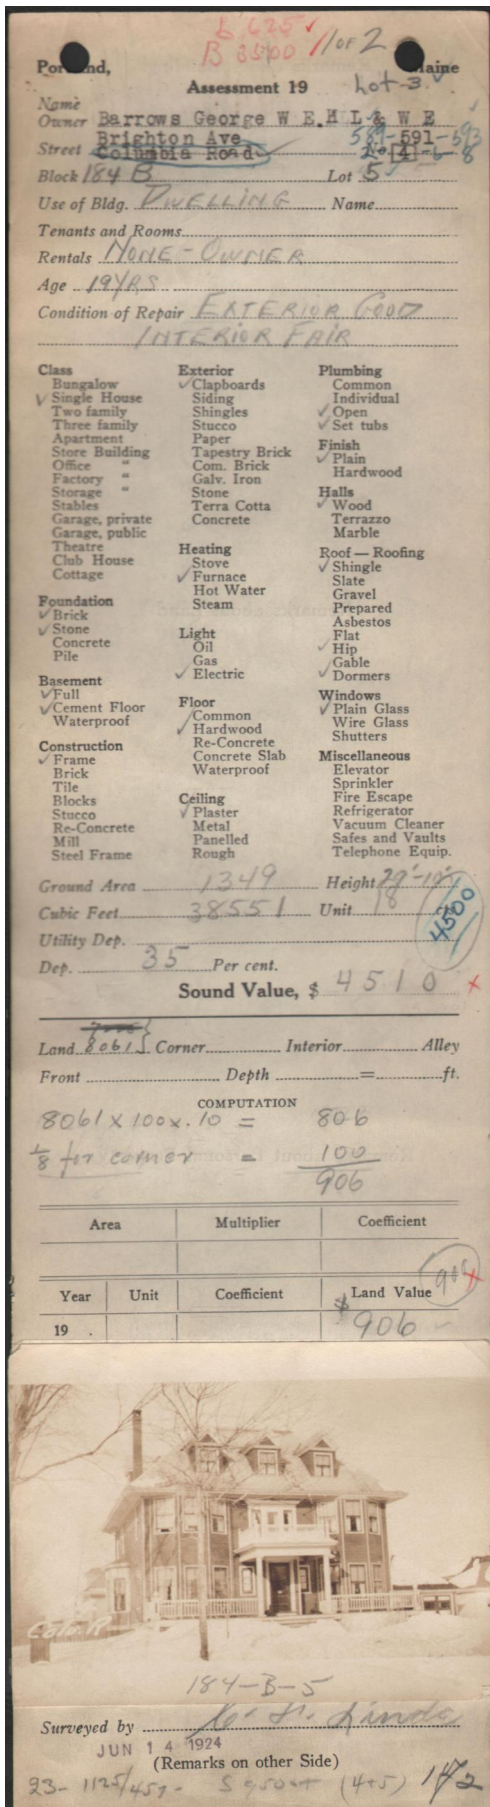 L 625 ✓
B 3500 ✓ 1 OF 2
Portland, Maine
Assessment 19 Lot-3 ✓
Name
Owner Barrows George W E. H L & W E
Brighton Ave 589-591-593
Street Columbia Road 4-6-8
Block 184 B Lot 5
Use of Bldg. DWELLING Name
Tenants and Rooms
Rentals NONE - OWNER
Age 19 YRS
Condition of Repair EXTERIOR GOOD
INTERIOR FAIR
Class
Bungalow
✓ Single House
Two family
Three family
Apartment
Store Building
Office "
Factory "
Storage "
Stables
Garage, private
Garage, public
Theatre
Club House
Cottage
Foundation
✓ Brick
✓ Stone
Concrete
Pile
Basement
✓ Full
✓ Cement Floor
Waterproof
Construction
✓ Frame
Brick
Tile
Blocks
Stucco
Re-Concrete
Mill
Steel Frame
Exterior
✓ Clapboards
Siding
Shingles
Stucco
Paper
Tapestry Brick
Com. Brick
Galv. Iron
Stone
Terra Cotta
Concrete
Heating
Stove
✓ Furnace
Hot Water
Steam
Light
Oil
Gas
✓ Electric
Floor
Common
✓ Hardwood
Re-Concrete
Concrete Slab
Waterproof
Ceiling
✓ Plaster
Metal
Panelled
Rough
Plumbing
Common
Individual
✓ Open
✓ Set tubs
Finish
✓ Plain
Hardwood
Halls
✓ Wood
Terrazzo
Marble
Roof — Roofing
✓ Shingle
Slate
Gravel
Prepared
Asbestos
Flat
✓ Hip
Gable
✓ Dormers
Windows
✓ Plain Glass
Wire Glass
Shutters
Miscellaneous
Elevator
Sprinkler
Fire Escape
Refrigerator
Vacuum Cleaner
Safes and Vaults
Telephone Equip.
Ground Area 1349 Height
Cubic Feet 38551 Unit 18 cts.
4500
Utility Dep.
Dep. 35 Per cent.
Sound Value, $ 4510 x
Land 8061 Corner Interior Alley
Front Depth = ft.
COMPUTATION
8061 x 100 x .10 = 806
1/8 for corner = 100
906
Area Multiplier Coefficient
Year Unit Coefficient Land Value 906 x
19 . $ 906
Colo. R
184-B-5
Surveyed by
JUN 14 1924
(Remarks on other Side)
23- 1125/457- (4+5)